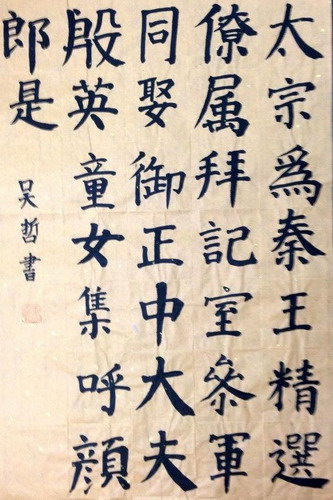 太宗爲秦王精選
僚属拜記室叅軍
同娶御正中大夫
殷英童女集呼顔
郎是
吴哲書